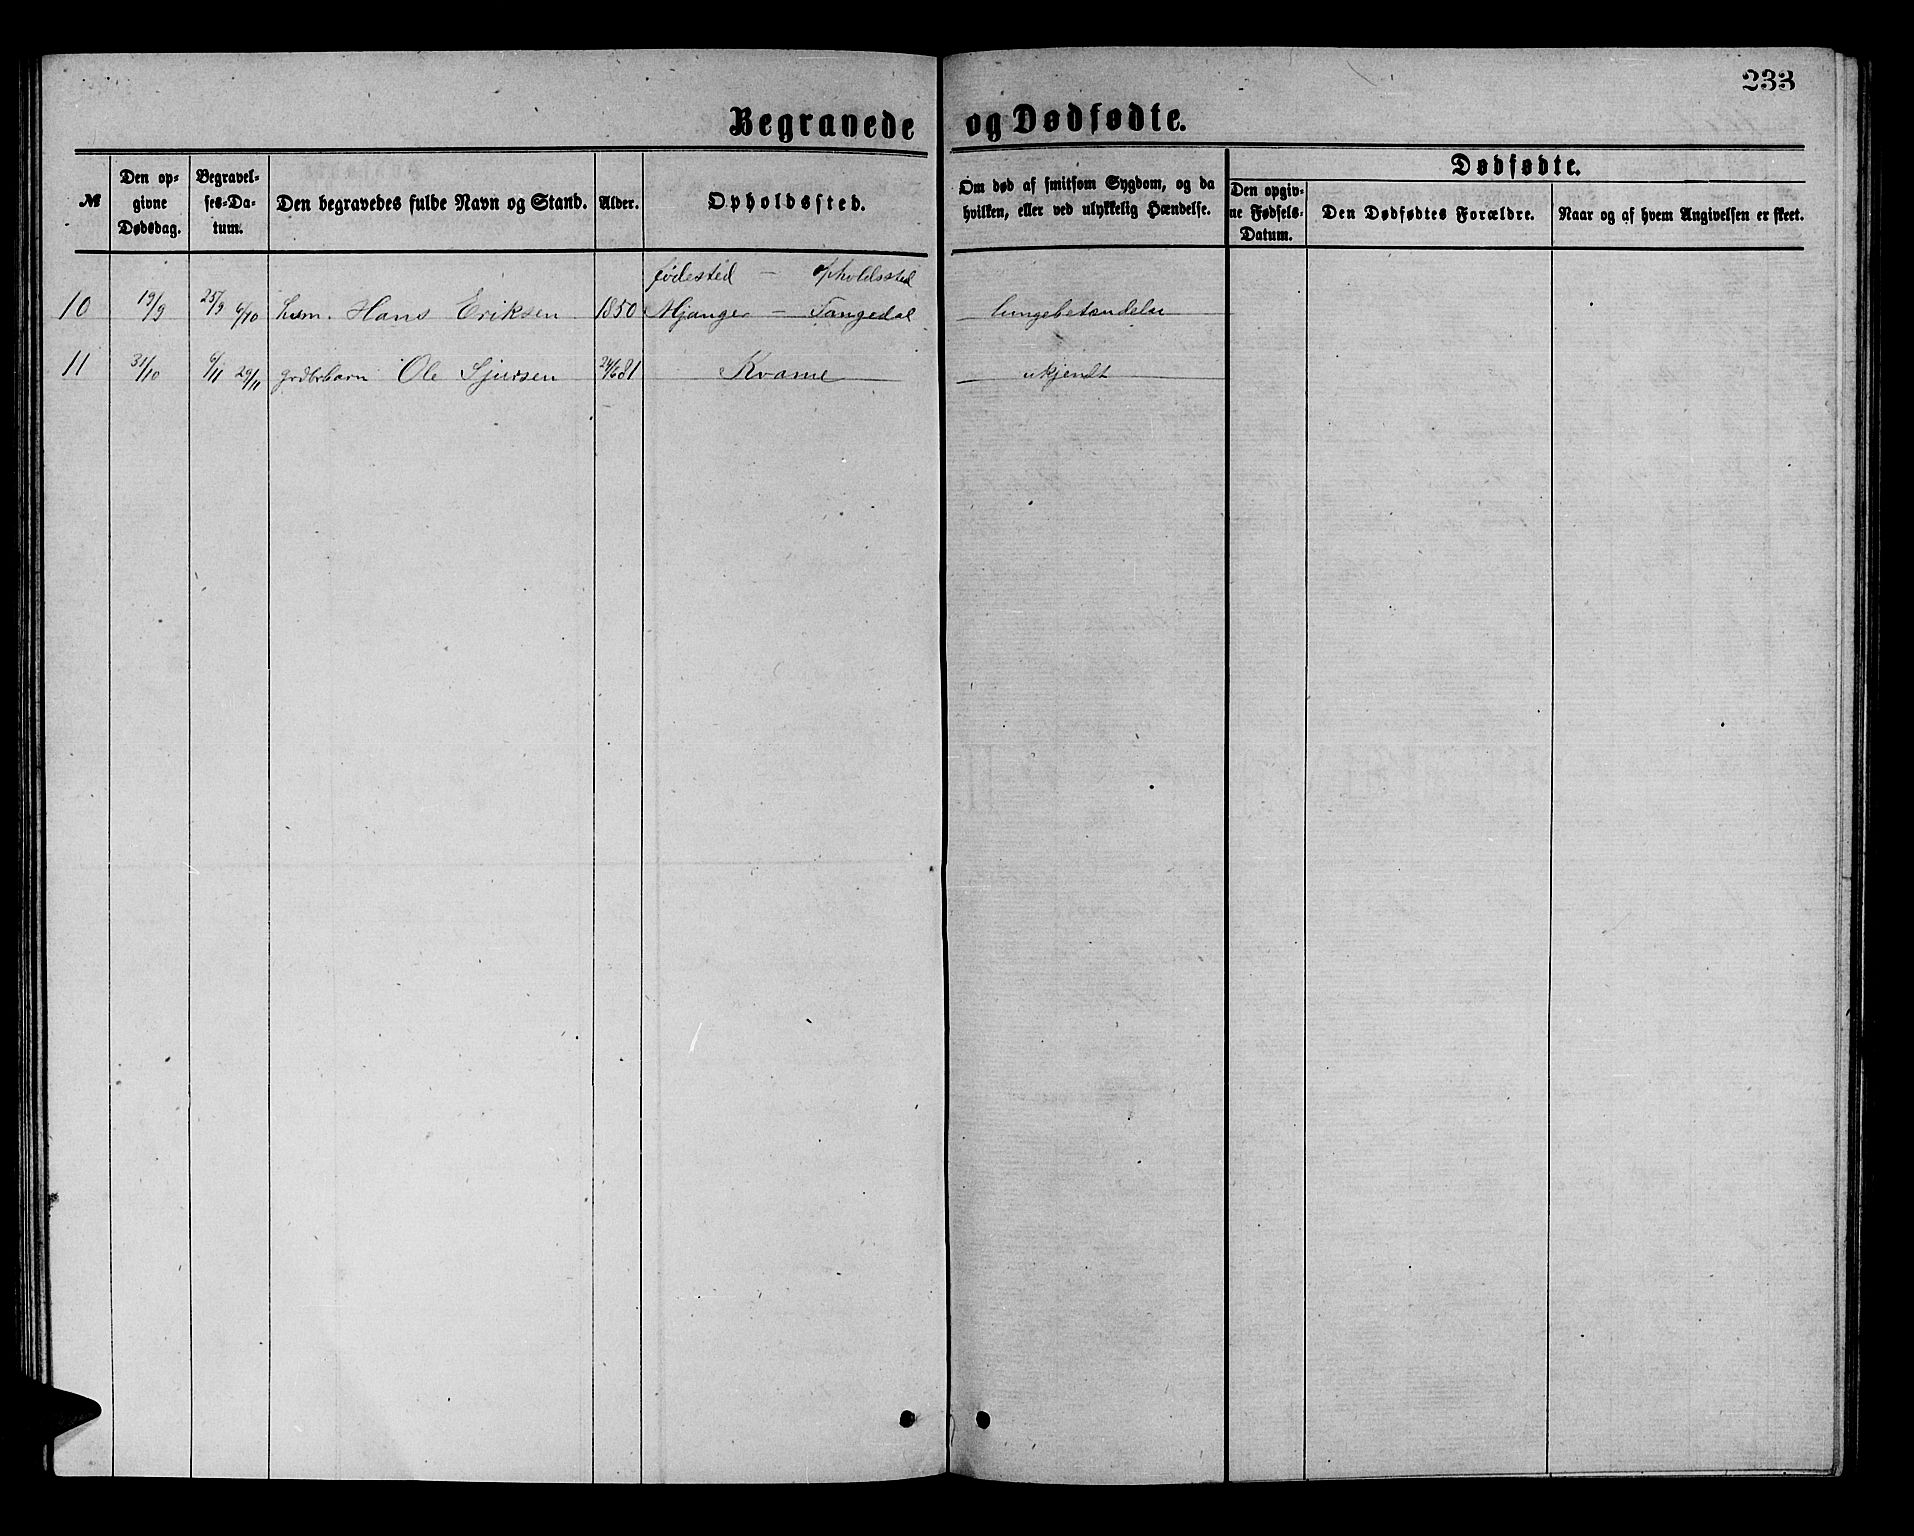 233
Begravede og Dødfødte.
№
Den opgivne Dødsdag.
Begravelses-Datum.
Den begravedes fulde Navn og Stand.
Alder.
Opholdssted.
Om død af smitsom Sygdom, og da hvilken, eller ved ulykkelig Hændelse.
Dødfødte.
Den opgivne Fødsels-Datum.
Den Dødfødtes Forældre.
Naar og af hvem Angivelsen er skeet.
fødested — opholdssted
10 19/9 25/9 6/10 husm. Hans Eriksen 1850 Mjanger — Tangedal lungebetændelse
11 31/10 6/11 29/11 grdbrbarn Ole Sjursen 24/6 81 Kvame ukjendt